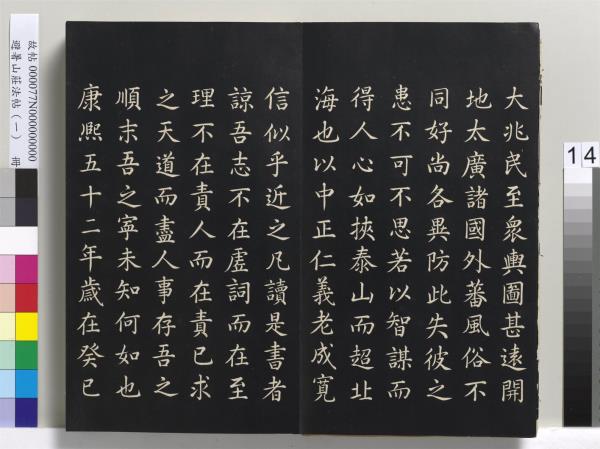 大兆民至眾輿圖甚遠開
地太廣諸國外蕃風俗不
同好尚各異防此失彼之
患不可不思若以智謀而
得人心如挾泰山而超北
海也以中正仁義老成寬
信似乎近之凡讀是書者
諒吾志不在虛詞而在至
理不在責人而在責己求
之天道而盡人事存吾之
順末吾之寧未知何如也
康熙五十二年歲在癸巳
故帖 000077N000000000
避暑山莊法帖(一) 冊
14